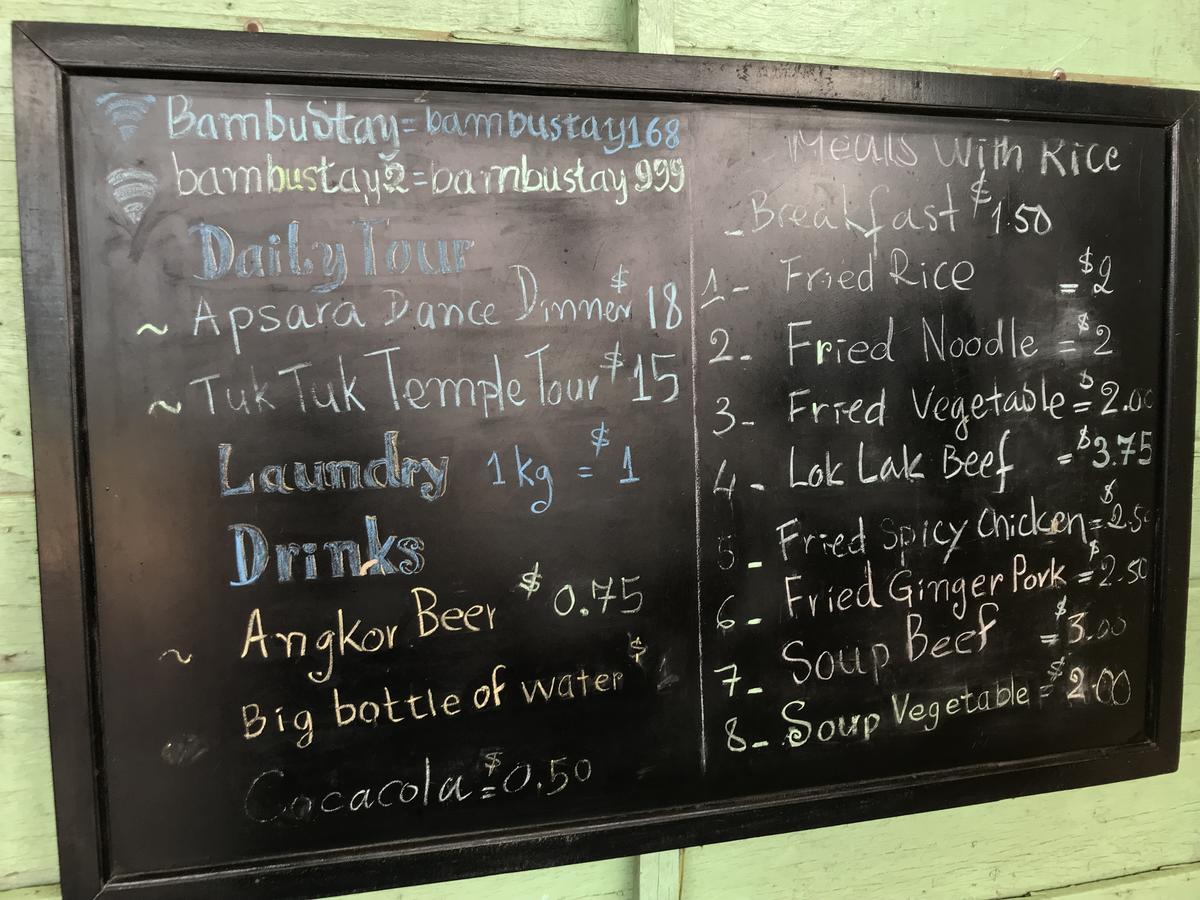 BambuStay=bambustay168
bambustay2=bambustay999
Daily Tour
~ Apsara Dance Dinner $18
~ Tuk Tuk Temple Tour $15
Laundry 1kg = $1
Drinks
~ Angkor Beer $0.75
Big bottle of water $1
Cocacola = $0.50
Meals With Rice
- Breakfast $1.50
1- Fried Rice = $2
2- Fried Noodle = $2
3- Fried Vegetable = $2.00
4- Lok Lak Beef = $3.75
5- Fried Spicy Chicken = $2.50
6- Fried Ginger Pork = $2.50
7- Soup Beef = $3.00
8- Soup Vegetable = $2.00